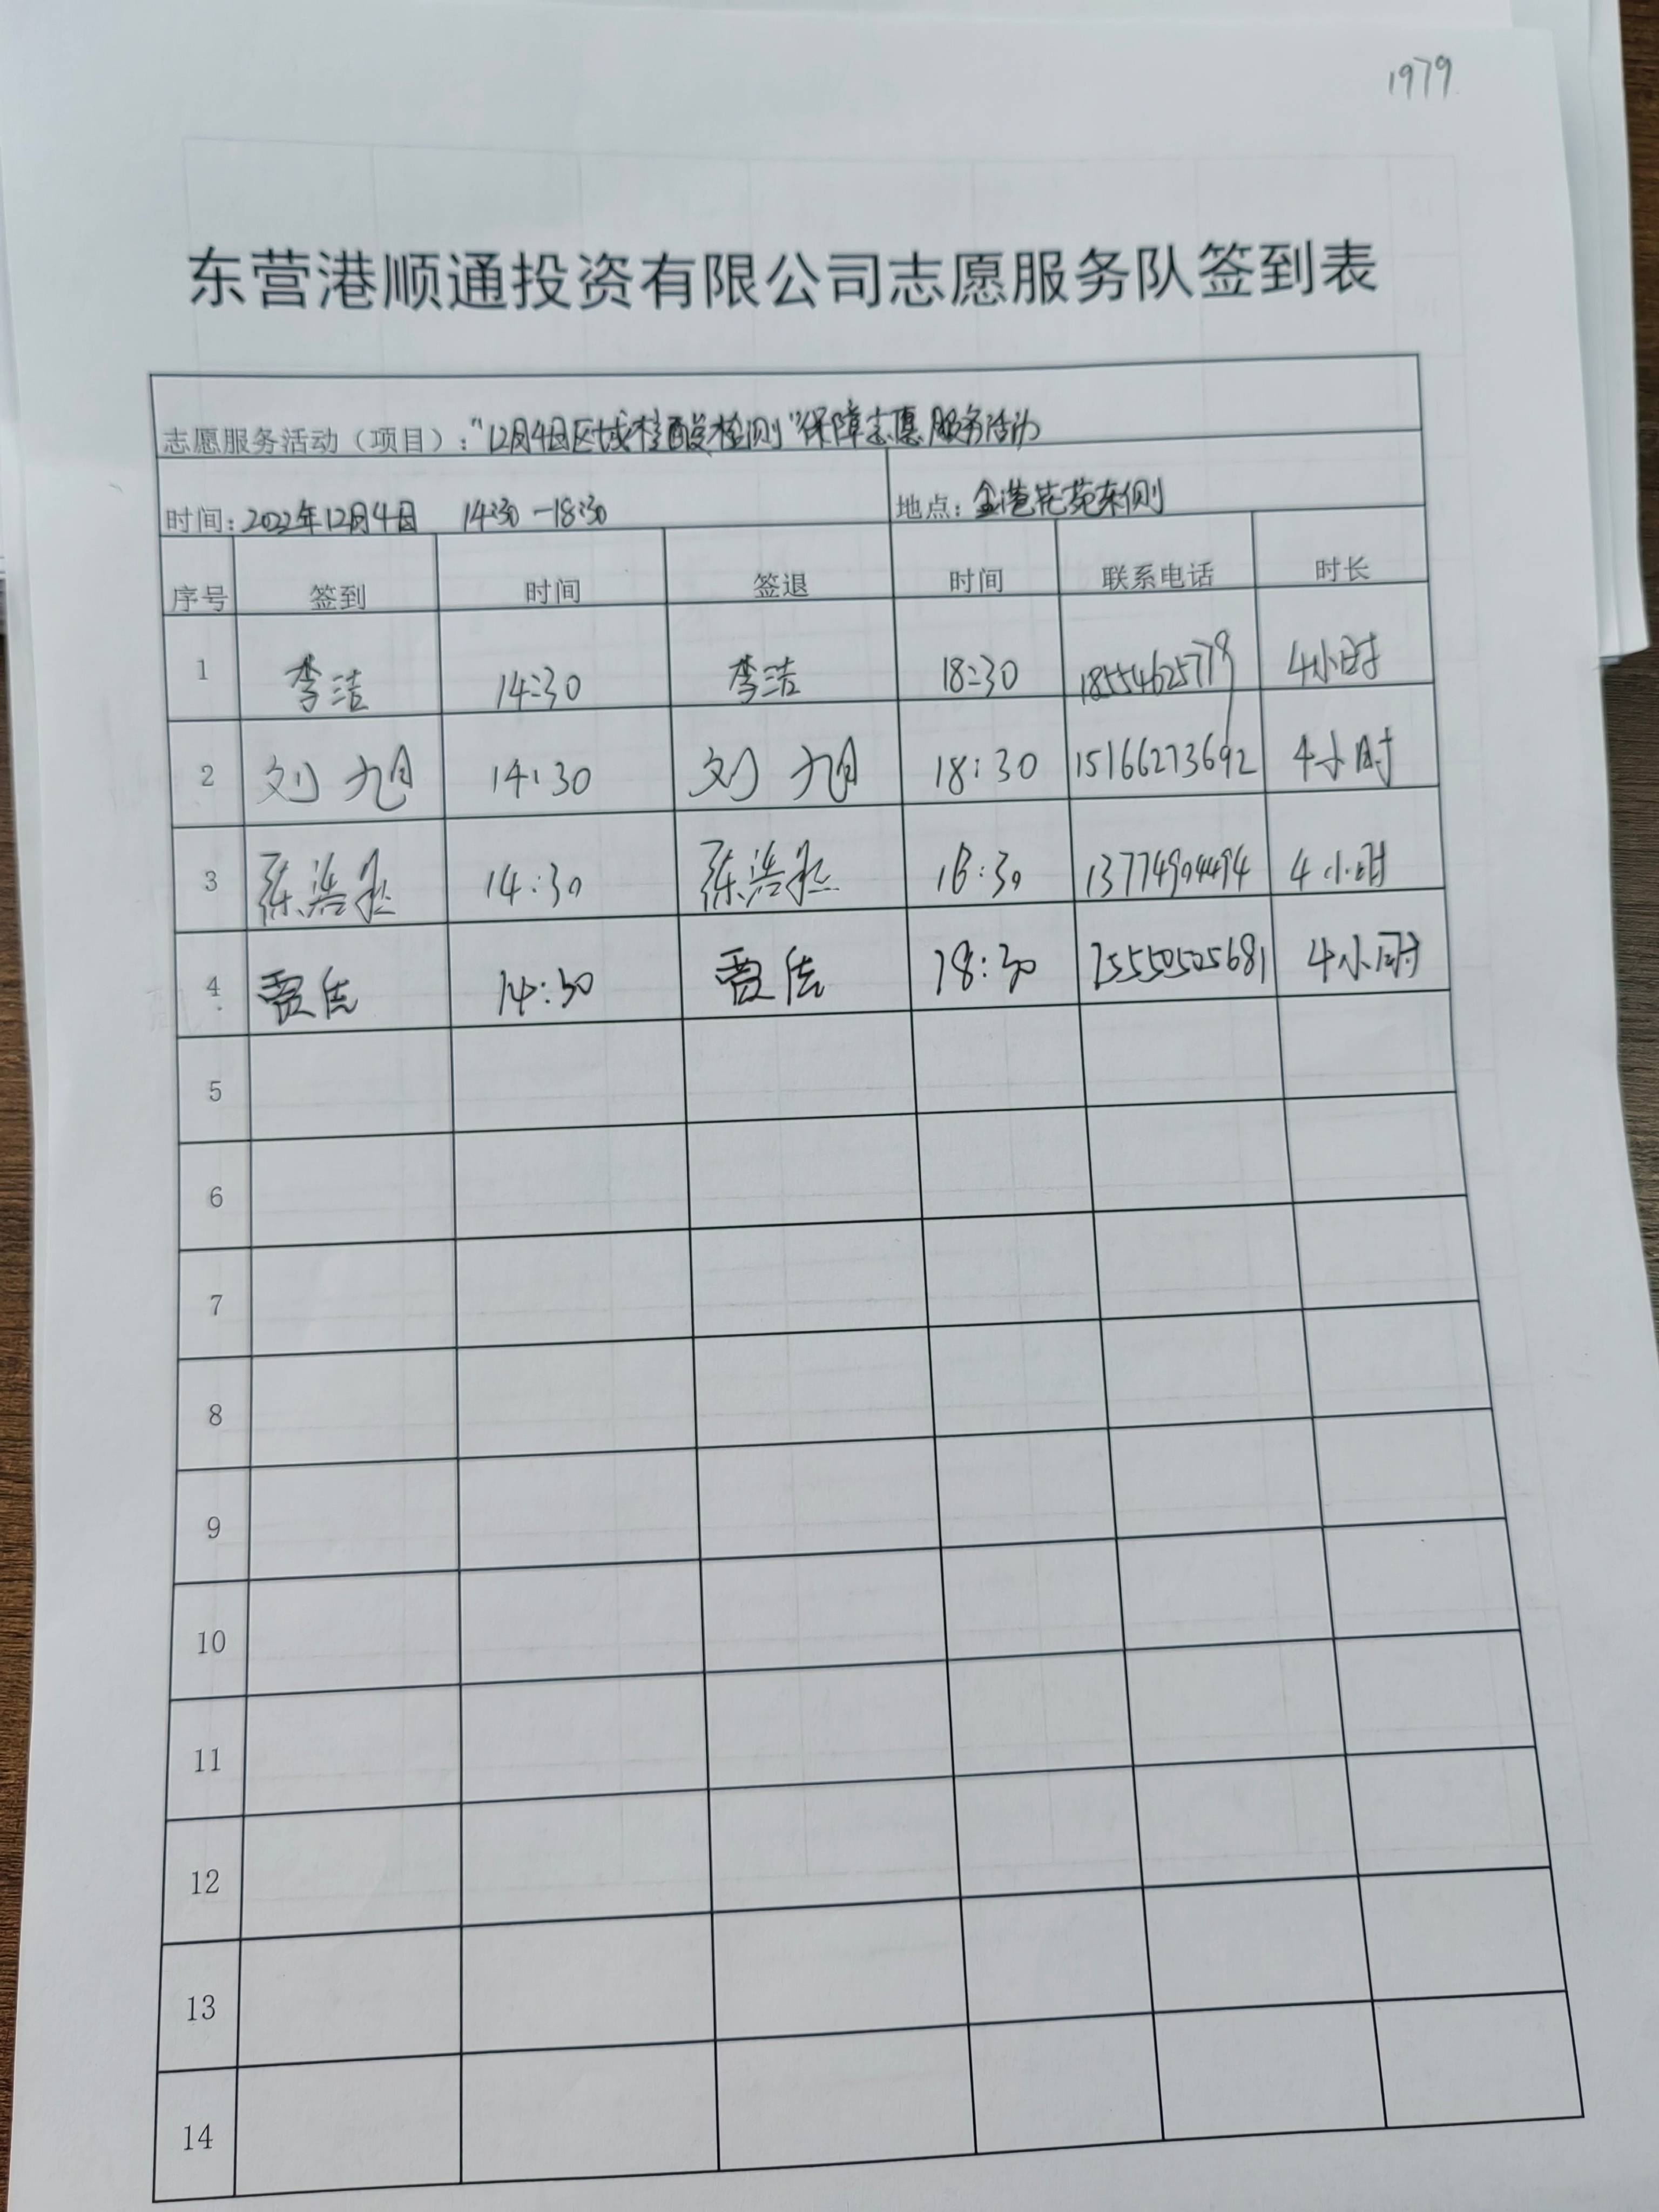 1979
东营港顺通投资有限公司志愿服务队签到表
志愿服务活动（项目）：“12月4日区域核酸检测”保障志愿服务活动
时间：2022年12月4日 14:30-18:30 地点：金港花苑东侧
序号 签到 时间 签退 时间 联系电话 时长
1 李洁 14:30 李洁 18:30 18554625779 4小时
2 刘旭 14:30 刘旭 18:30 15166273692 4小时
3 14:30 18:30 13774904494 4小时
4 贾佳 14:30 贾佳 18:30 15550505681 4小时
5
6
7
8
9
10
11
12
13
14